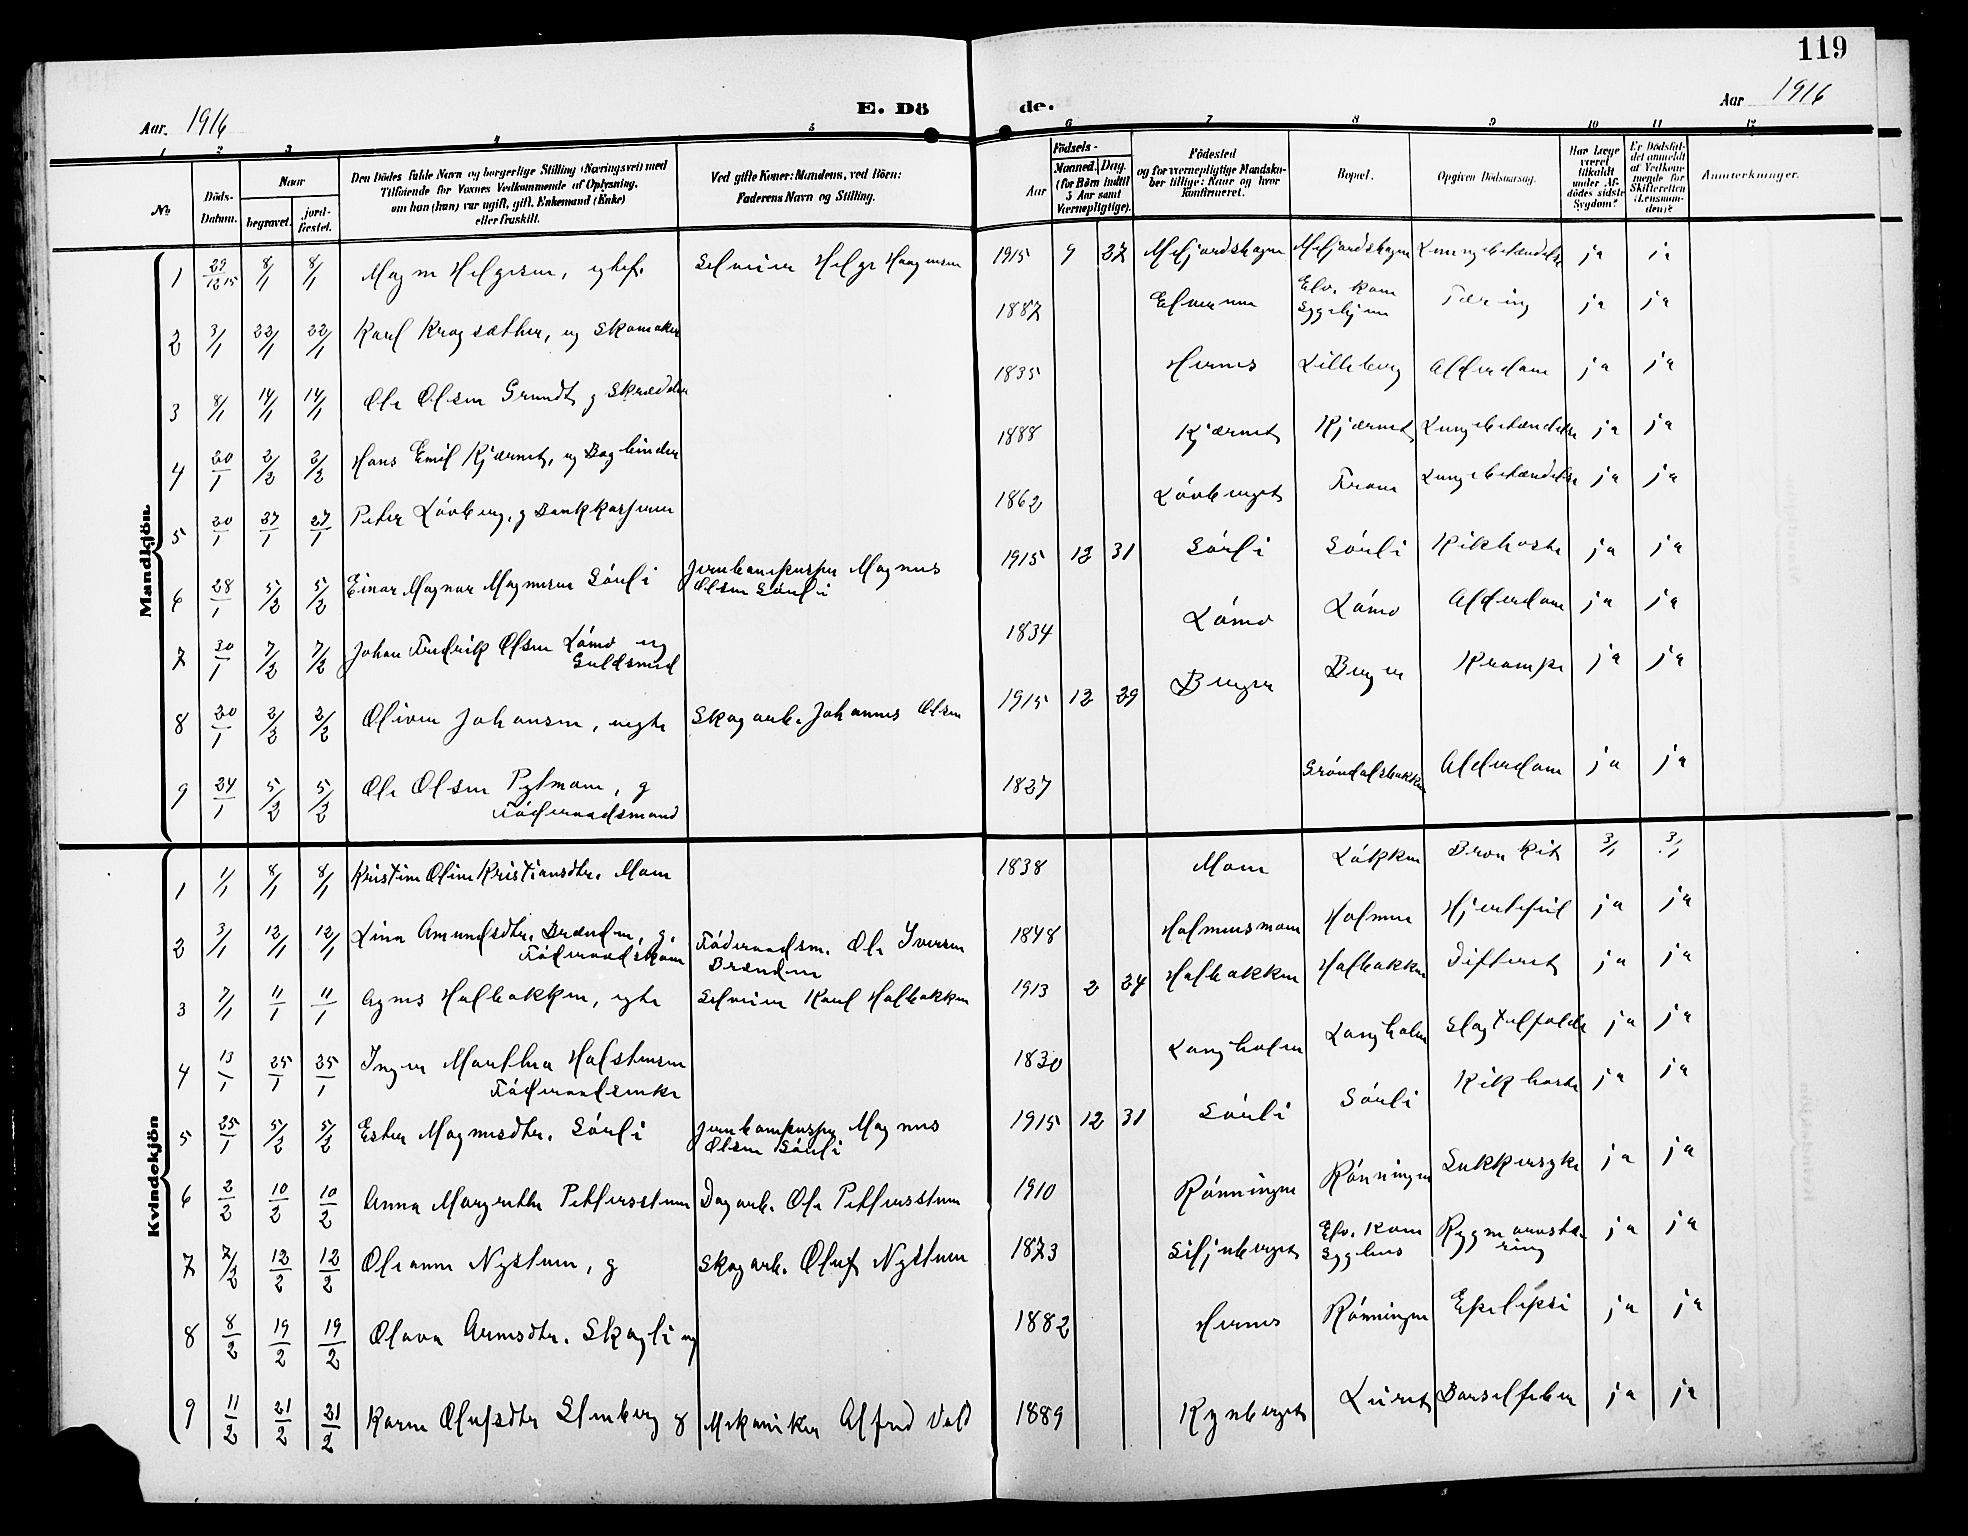 119
Aar. 1916
E. Dö
de.
Aar 1916
1 2 3 4 5 6 7 8 9 10 11 12
No
Döds-Datum.
Naar
begravet.
jord-fæstet.
Den Dödes fulde Navn og borgerlige Stilling (Næringsvei) med
Tilföiende for Voxnes Vedkommende af Oplysning,
om han (hun) var ugift, gift, Enkemand (Enke)
eller fraskilt.
Ved gifte Koner: Mandens, ved Börn:
Faderens Navn og Stilling.
Födsels-
Aar
Maaned. Dag.
(for Börn indtil
5 Aar samt
Værnepligtige).
Födested
og for værnepligtige Mandsku-
ber tillige: Naar og hvor
konfirmeret.
Bopæl.
Opgiven Dödsaarsag.
Har Læge
været
tilkaldt
under Af-
dödes sidste
Sygdom?
Er Dödsfal-
det anmeldt
af Vedkom-
mende for
Skifteretten
(Lensman-
den)?
Anmærkninger.
Mandkjön.
1 29/12 15 8/1 8/1 Magn Helgesen, Selveier Helge Haagensen 1915 9 27 Mefjordskogen Mefjordskogen Lungebetændelse ja ja
2 3/1 22/1 22/1 Karl Kragsæther, ug Skomaker 1887 Elverum Elv. Kom Sygehjem Tæring ja ja
3 8/1 14/1 14/1 Ole Olsen Grundt g Skrædder 1835 Hernes Lilleberg Alderdom ja ja
4 20/1 2/2 2/2 Hans Emil Kjærnet, ug Bogbinder 1888 Kjærnet Kjærnet Lungebetændelse ja ja
5 20/1 27/1 27/1 Peter Lövberg, g Bankkasserer 1862 Lövberget Fram Lungebetændelse ja ja
6 28/1 5/2 5/2 Einar Magnar Magnussen Sörli Jernbanepusser Magnus
Olsen Sörli 1915 12 31 Sörli Sörli Kikhoste ja ja
7 30/1 7/2 7/2 Johan Fredrik Olsen Lömo ug
Guldsmed 1834 Lömo Lömo Alderdom ja ja
8 20/1 2/2 2/2 Oliver Johansen, uegte Skogarb. Johannes Olsen 1915 12 29 Berger Berger Krampe ja ja
9 24/1 5/2 5/2 Ole Olsen Pytmoen, g
Föderaadsmand 1827 Gröndalsbakken Alderdom ja ja
Kvindekjön
1 1/1 8/1 8/1 Kristine Oline Kristiansdtr. Moen 1838 Moen Lökken Bronkit 3/1 3/1
2 3/1 12/1 12/1 Lina Amundsdtr. Brænden, g.
Föderaadskone Föderaadsm. Ole Iversen
Brænden 1848 Holmensmoen Holmen Hjertefeil ja ja
3 7/1 11/1 11/1 Agnes Holbakken, egte Selveier Karl Holbakken 1913 2 24 Holbakken Holbakken Difterit ja ja
4 13/1 25/1 25/1 Inger Marthea Halstensen
Föderaadsenke 1830 Langholen Langholen Slagtilfælde ja ja
5 25/1 5/2 5/2 Ester Magnusdtr. Sörli Jernbanepusser Magnus
Olsen Sörli 1915 12 31 Sörli Sörli Kikhoste ja ja
6 2/2 10/2 10/2 Anna Margrethe Pettersstuen Dagarb. Ole Pettersstuen 1910 Rönningen Rönningen Sukkersyke ja ja
7 7/2 12/2 12/2 Oleanne Nystuen, g Skogarb. Oluf Nystuen 1873 Siljuberget Elv. Kom
Sygehus Rygmarvstæ
ring ja ja
8 8/2 19/2 19/2 Olava Arnesdtr. Skogli ug 1882 Hernes Rönningen Epilepsi ja ja
9 11/2 21/2 21/2 Karen Olufsdtr Stenberg g Mekaniker Alfred Vold 1889 Rynberget Leiret Barselfeber ja ja